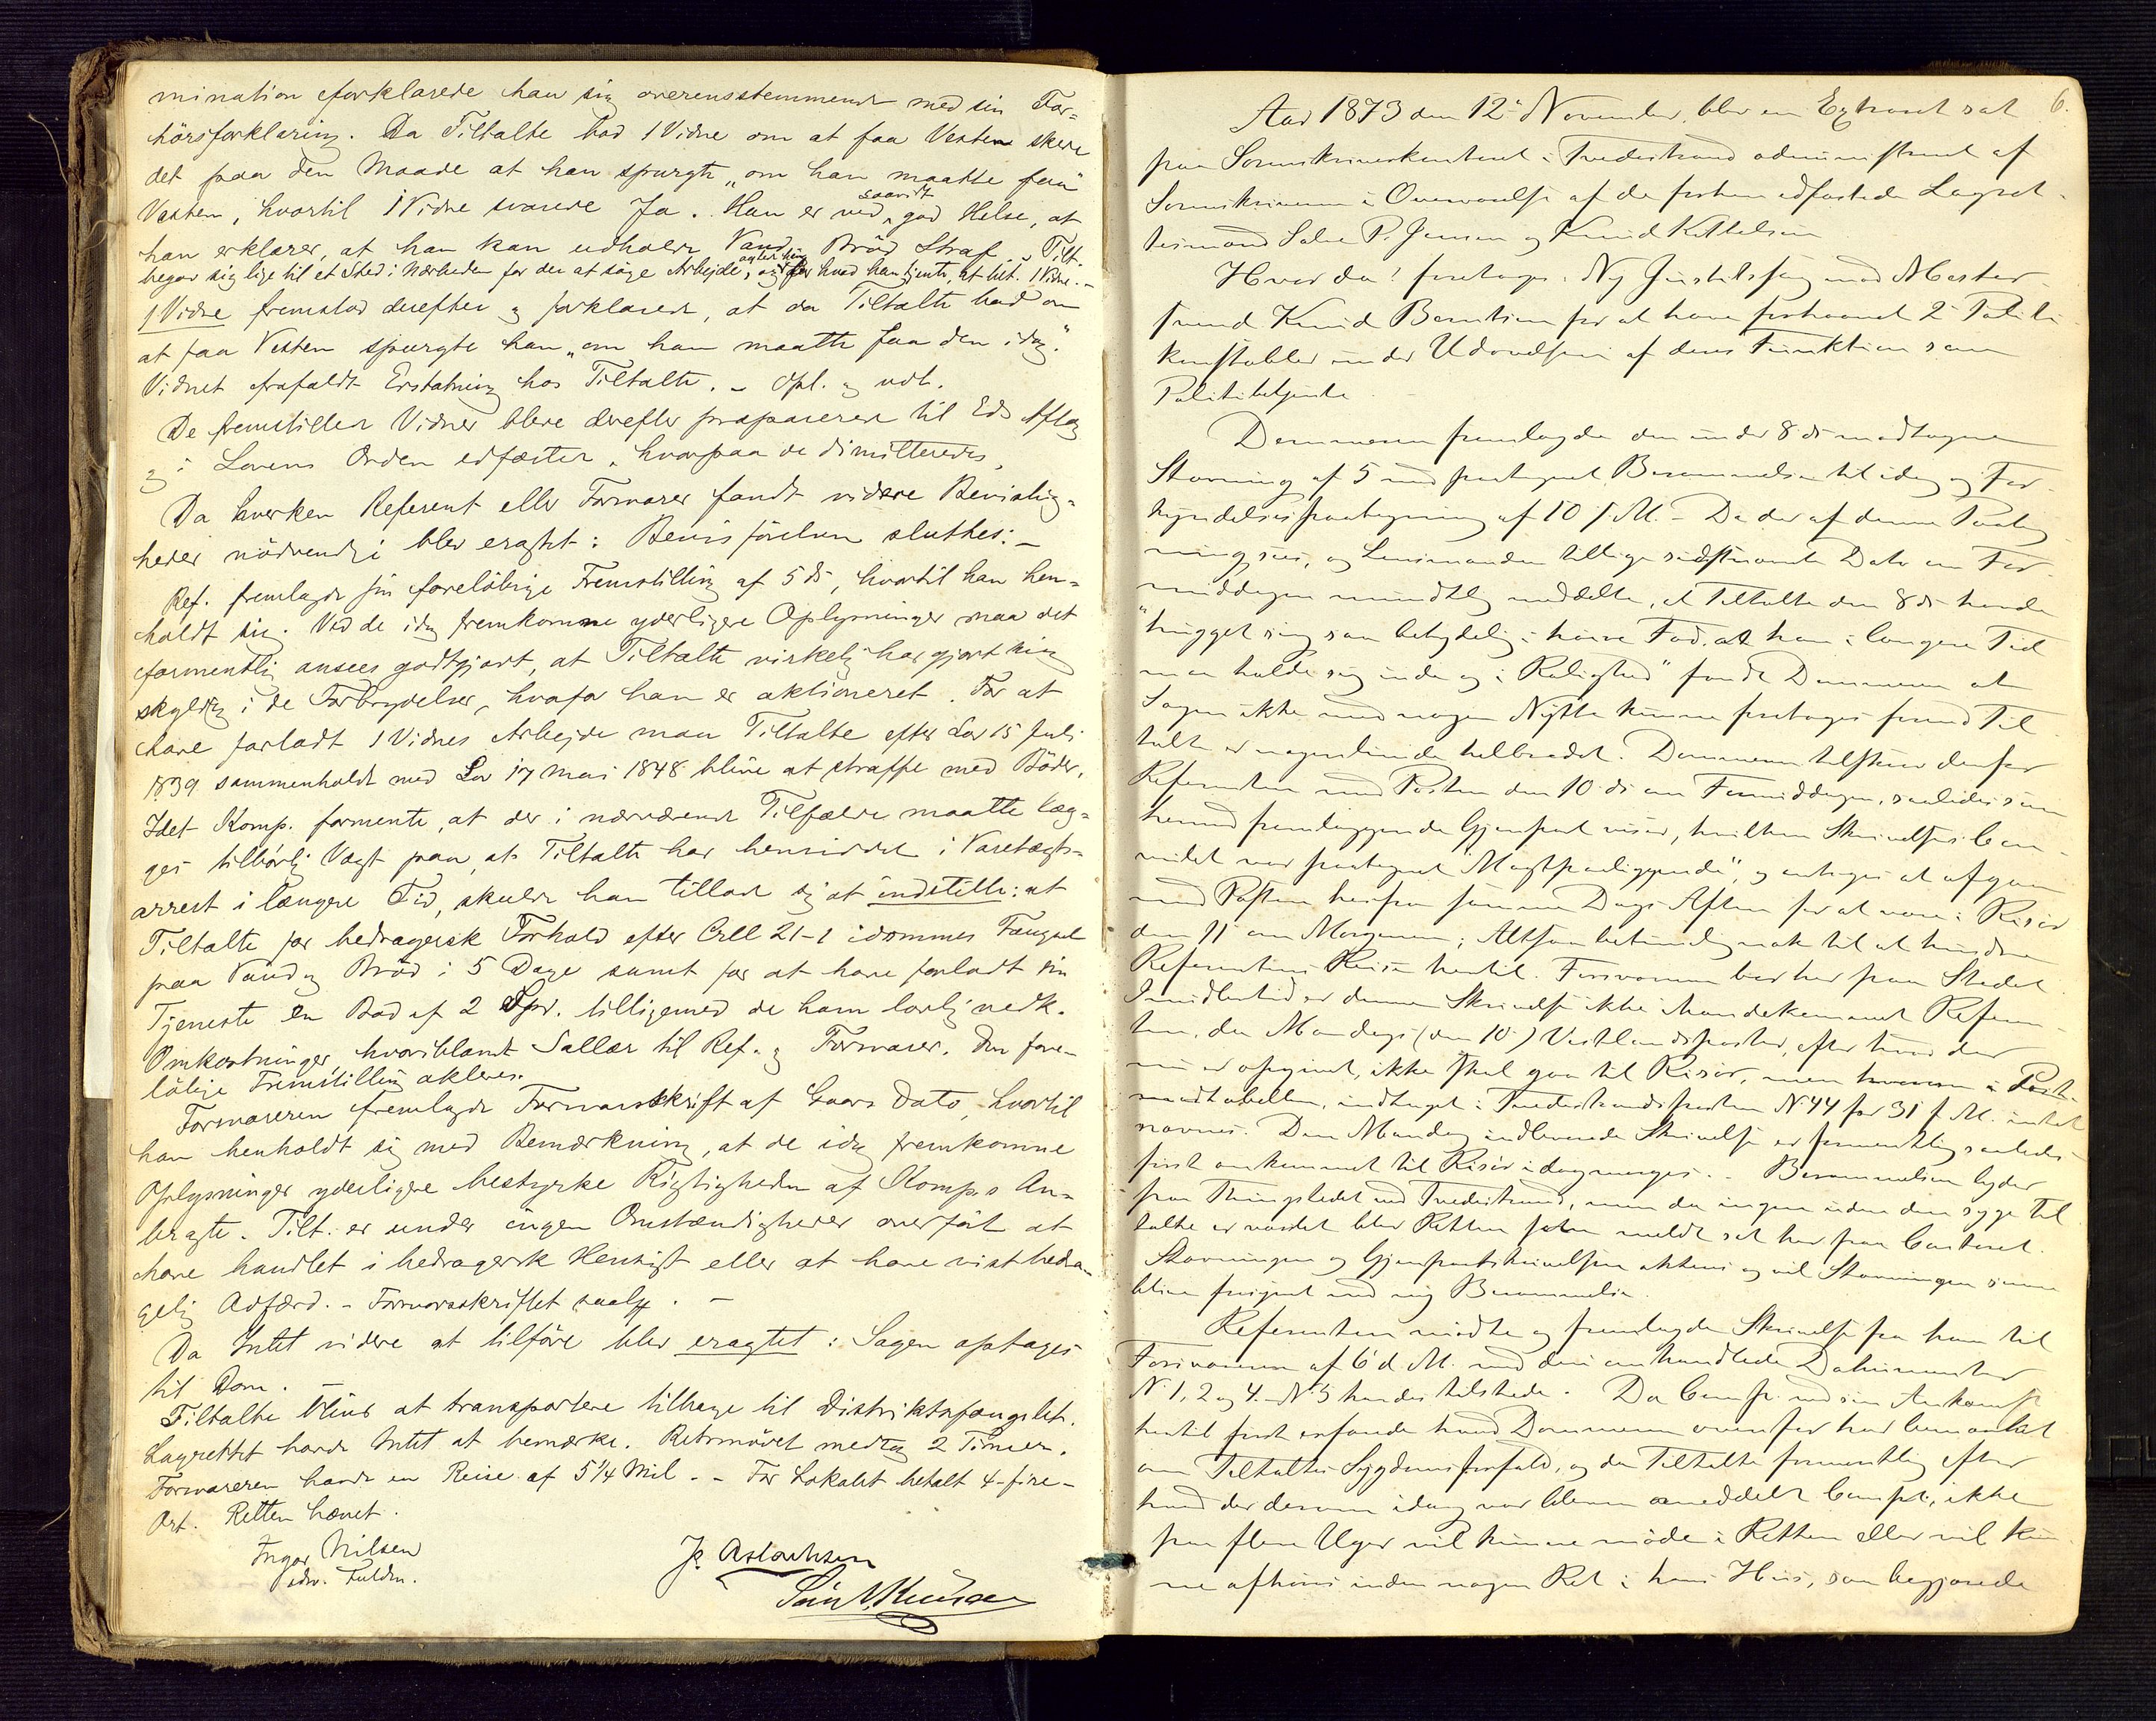 mination forklarede han sig overensstemmende med sin For=
hörsforklaring. Da Tiltalte bad 1 Vidne om at faa Vesten skede
det paa den Maade at han spurgte „om han maatte faa"
Vesten, hvortil 1 Vidne svarede Ja. Han er ved saavidt god Helse, at
han erklærer, at han kan udholde Vand og Bröd Straf. - Tilt.
begav sig lige til et Sted i Nærheden for der at söge Arbejde, for hvad han tjente, at bet. 1 Vidne. -
1 Vidne fremstod derefter og forklarede, at da Tiltalte bad om
at faa Vesten spurgte han „om han maatte faa den idag."
Vidnet frafaldt Erstatning hos Tiltalte. - Opl. og vedt.
De fremstillede Vidner bleve derefter præparerede til Eds Aflæg
og i Lovens Orden edfæstede, hvorpaa de dimitteredes.
Da hverken Referent eller Forsvarer fandt videre Bevislig=
heder nödvendige blev eragtet: Bevisförelsen sluttes: -
Ref. fremlagde sin forelöbige Fremstilling af 5 ds, hvortil han hen=
holdt sig. Ved de idag fremkomne yderligere Oplysninger maa det
formentlig ansees godtgjort, at Tiltalte virkelig har gjort sig
skyldig i de Forbrydelser, hvorfor han er aktioneret. For at
have forladt 1 Vidnes Arbejde maa Tiltalte efter Lov 15 Juli
1839 sammenholdt med Lov 17 Mai 1848 blive at straffe med Böder.
Idet Komp. formente, at der i nærværende Tilfælde maatte læg=
ges tilbörlig Vægt paa, at Tiltalte har hensiddet i Varetægts=
arrest i længere Tid, skulde han tillade sig at indstille: at
Tiltalte for bedragersk Forhold efter Crll 21-1 idömmes Fængsel
paa Vand og Bröd i 5 Dage samt for at have forladt sin
Tjeneste en Bod af 2 Spd. tilligemed de ham lovlig vedk.
Omkostninger, hvoriblandt Sallær til Ref. og Forsvarer. Den fore-
löbige Fremstilling akteres.
Forsvareren fremlagde Forsvarsskrift af Gaars Dato, hvortil
han henholdt sig med Bemærkning, at de idag fremkomne
Oplysninger yderligere bestyrke Rigtigheden af Komp.s An-
bragte. Tilt. er under ingen Omstændigheder overfört at
have handlet i bedragersk Hensigt eller at have vist bedra-
gelig Adfærd. - Forsvarsskriftet saalyd. -
Da Intet videre at tilföre blev eragtet: Sagen optages
til Dom. -
Tiltalte blive at transportere tilbage til Distriktsfængslet.
Lagrettet havde Intet at bemærke. Retsmödet medtog 2 Timer.
Forsvareren havde en Reise af 5 1/4 Mil. - For Lokalet betalt 4-fire-
Ort. Retten hævet.
Inger Nilsen
edsv. Fuldm.
J. Aslachsen

6.
Aar 1873 den 12te November, blev en Extraret sat
paa Sorenskriverkontoret i Tvedestrand administreret af
Sorenskriveren i Overværelse af de forhen edfæstede Lagret-
tesmænd Salve P. Jensen og Knud Kittelsen
Hvor da! foretoges: Ny Justitssag mod Mester
svend Knud Berntsen for at have forhaanet 2de Politi
konstabler under Udövelsen af deres Funktion som
Politibetjente.
Dommeren fremlagde den under 8 ds modtagne
Stævning af 5 med paategnet Berammelse til idag og For-
kyndelsespaategning af 10 f. M. - Da der af denne Paateg
ning sees, og Lensmanden tillige sidstnævnte Dato om For-
middagen mundtlig meddelte, at Tiltalte den 8 ds havde
"hugget sig saa betydelig i höire Fod, at han i længere Tid
maa holde sig inde og i Rolighed" fandt Dommeren at
Sagen ikke med nogen Nytte kunne foretages forend Til
talte er nogenlunde helbredet. Dommeren tilskrev derfor
Referenten med Posten den 10 ds om Formiddagen, saaledes som
herved fremlæggende Gjenpart viser, hvilken Skrivelses Con-
volut var paategnet "Magtpaaliggende", og antoges at afgaa
med Posten herfra samme Dags Aften for at være i Risör
den 11 om Morgenen; Altsaa betimelig nok til at hindre
Referentens Reise hertil. Forsvareren bor her paa Stedet.
Imidlertid er denne Skrivelse ikke ihændekommet Referen-
ten, da Mandags (den 10) Vestlandsposter, efter hvad der
nu er opgivet, ikke skal gaa til Risör, men hvorom i Post-
modtabellen, indtaget i Tvedestrandsposten N: 44 for 31 f. M. intet
nævnes. Den Mandag indleverede Skrivelse er formentlig saaledes
först ankommet til Risör idagmorges. - Berammelsen lyder
paa Thingstedet ved Tvedestrand, men da ingen uden den syge Til
talte er varslet blev Retten som meldt sat her paa Contoret.
Stævningen og Gjenpartskrivelsen akteres og vil Stævningen senere
blive forsynet med ny Berammelse.
Referenten mödte og fremlagde Skrivelse fra ham til
Forsvareren af 6 d. M. med deri omhandlede Dokumenter
N: 1, 2 og 4. - N: 3 havdes tilstede. Da Comp. ved sin Ankomst
hertil först erfarede hvad Dommeren ovenfor har bemærket
om Tiltaltes Sygdomsforfald, og da Tiltalte formentlig efter
hvad der derom idag var bleven meddelt Comp., ikke
paa flere Uger vil kunne möde i Retten eller vil kun
ne afhöres inden nogen Ret i hans Huus, saa begjærede